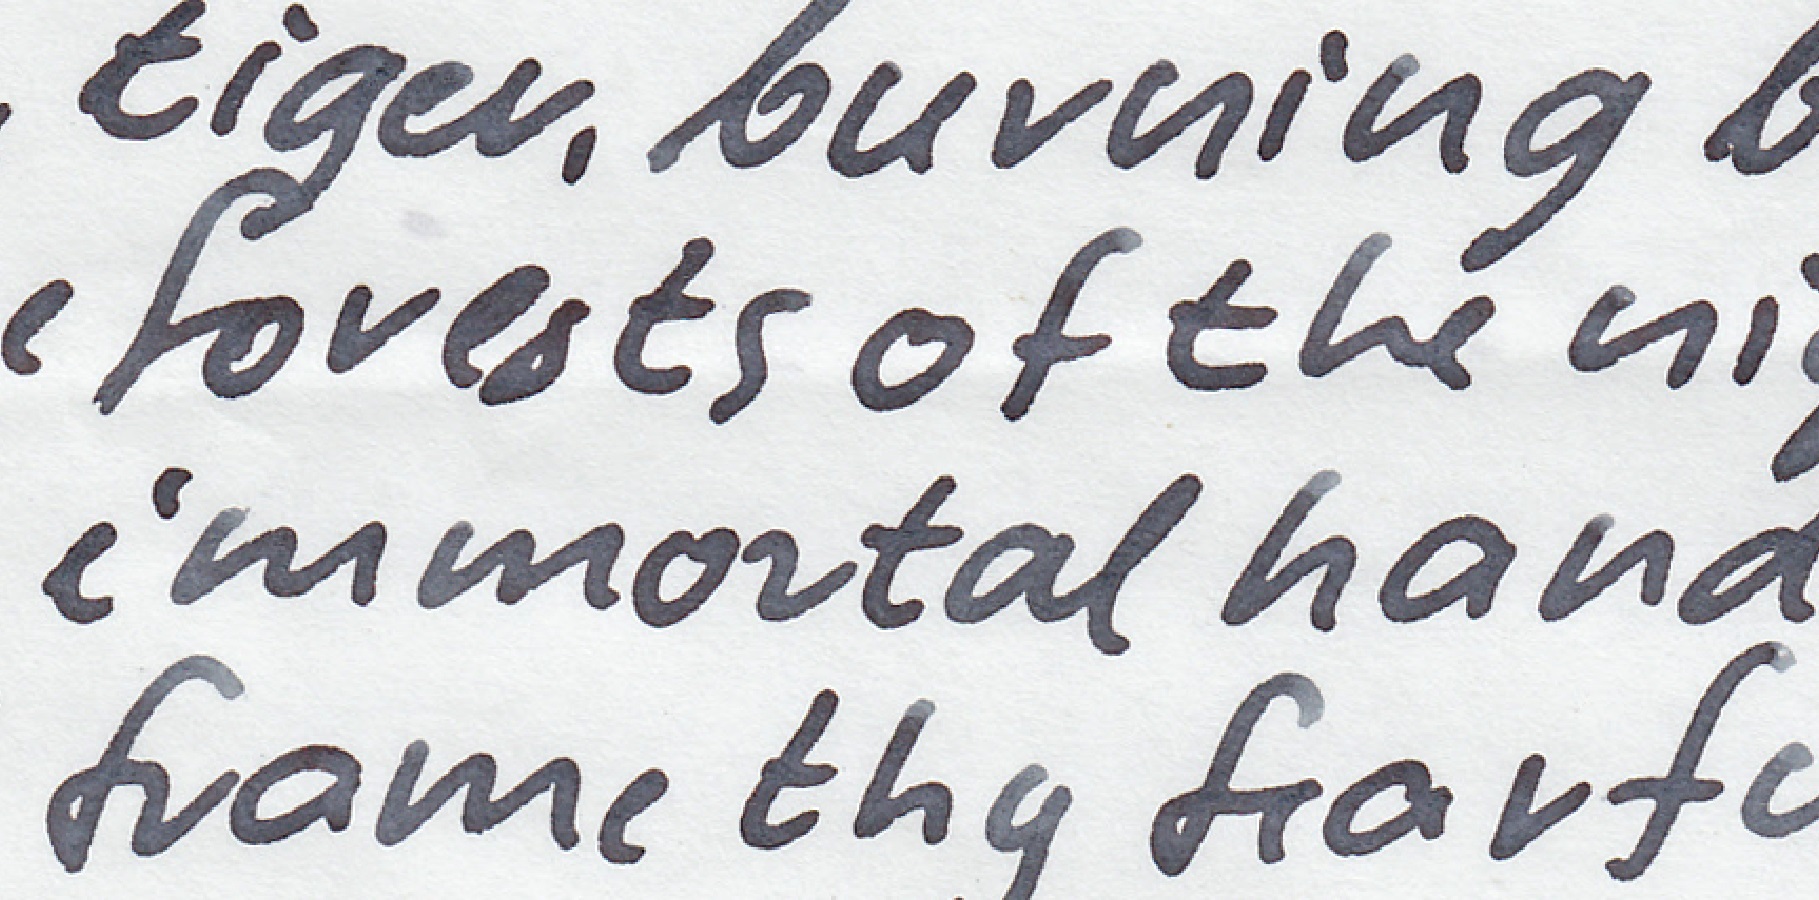 , tiger, burning b
e forests of the nig
immortal hand
frame thy fearfu